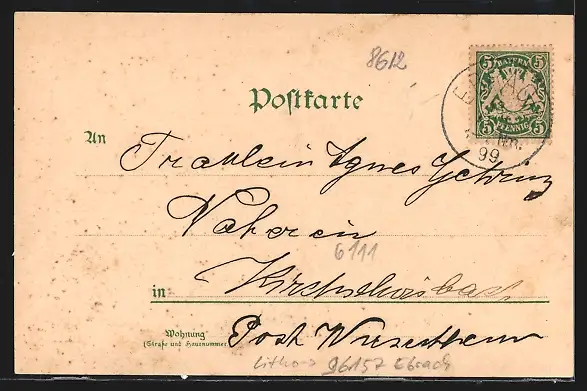 8612
5 BAYERN 5
5 PFENNIG 5
99
Postkarte
An
Fräulein Agnes
Näherin
6111
in
Wohnung
(Straße und Hausnummer)
Post
Litho 96157 Ebrach